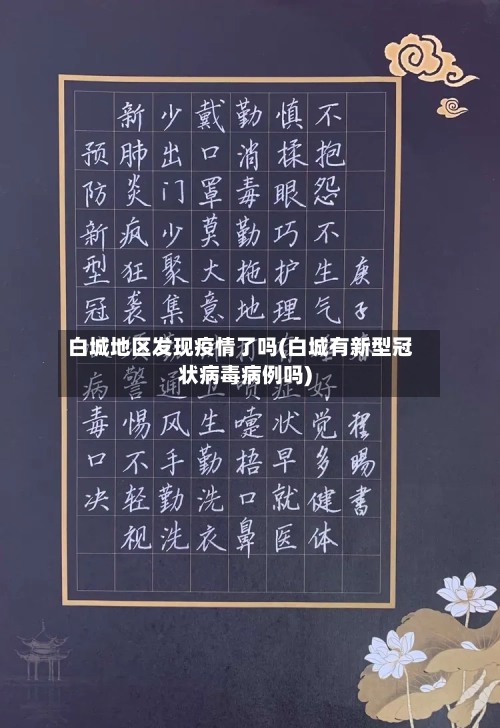 预防新型冠病毒口决
新肺炎疯狂袭警惕不轻视
少出门少聚集通风手勤洗
戴口罩莫大意卫生勤洗衣
勤消毒勤拖地喷嚏捂口鼻
慎揉眼巧护理症状早就医
不抱怨不生气好觉多健体
庚子程暘書
白城地区发现疫情了吗(白城有新型冠
状病毒病例吗)